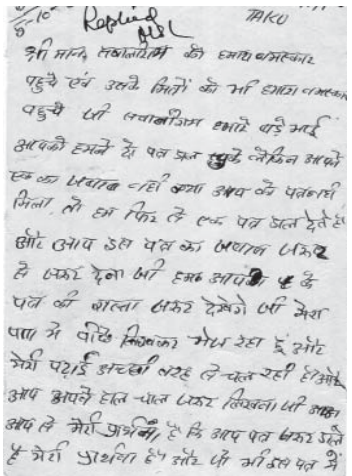 8/10 Replied TAKU
श्री मान सवालीराम को हमारा नमस्कार
पहुचे एवं उसके मित्रों को भी हमारा नमस्कार
पहुचे जी सवालीराम हमारे बड़े भाई
आपको हमने दो पत्र डाल चुके लेकिन आपने
एक का जबाब नहीं क्या आप को पत्र नहीं
मिला तो हम फिर से एक पत्र डाल देते हैं
और आप इस पत्र का जबाब जरूर
से जरूर देना जी हम आपके
पत्र का रास्ता जरूर देखेंगे जी मेरा
पता मे पीछे लिखकर भेज रहा हूं और
मेरी पढ़ाई अच्छी तरह से चल रही है और
आप अपने हाल चाल जरूर लिखना जी
आप से मेरी प्रार्थना है कि आप पत्र जरूर डाले
है मेरी प्रार्थना है और जी मैं इस पत्र में